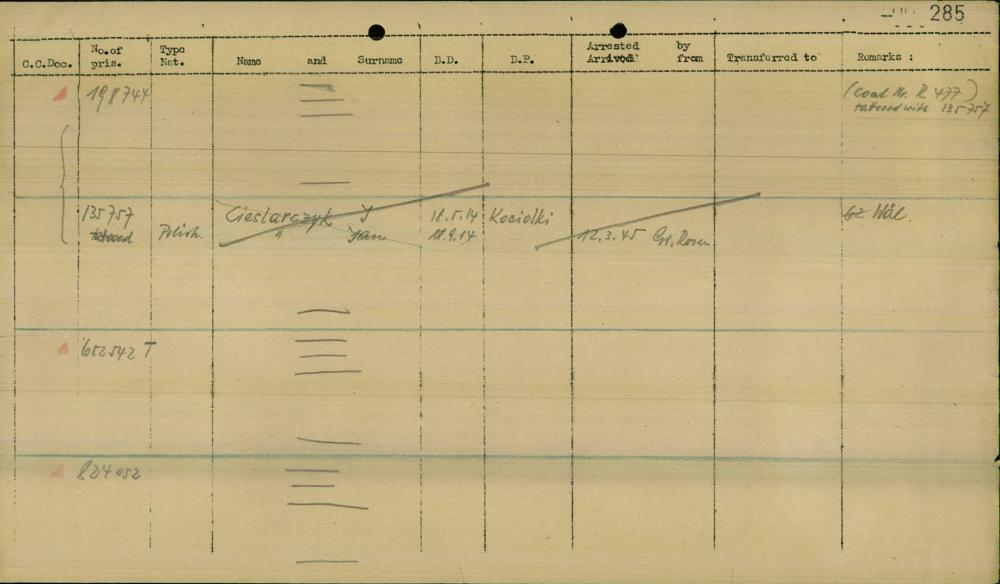 285
C.C.Doc. No.of pris. Type Nat. Name and Surname B.D. B.P. Arrested by Arrived from Transferred to Remarks :
198744 (Coat Nr. R 477)
tatooed with 135757
135757 Cieslarczyk J 18.5.14 Kociolki Wäl.
tatooed Polish. " Jan 18.9.14 12.3.45 Gr. Rosen
652542 T
824052